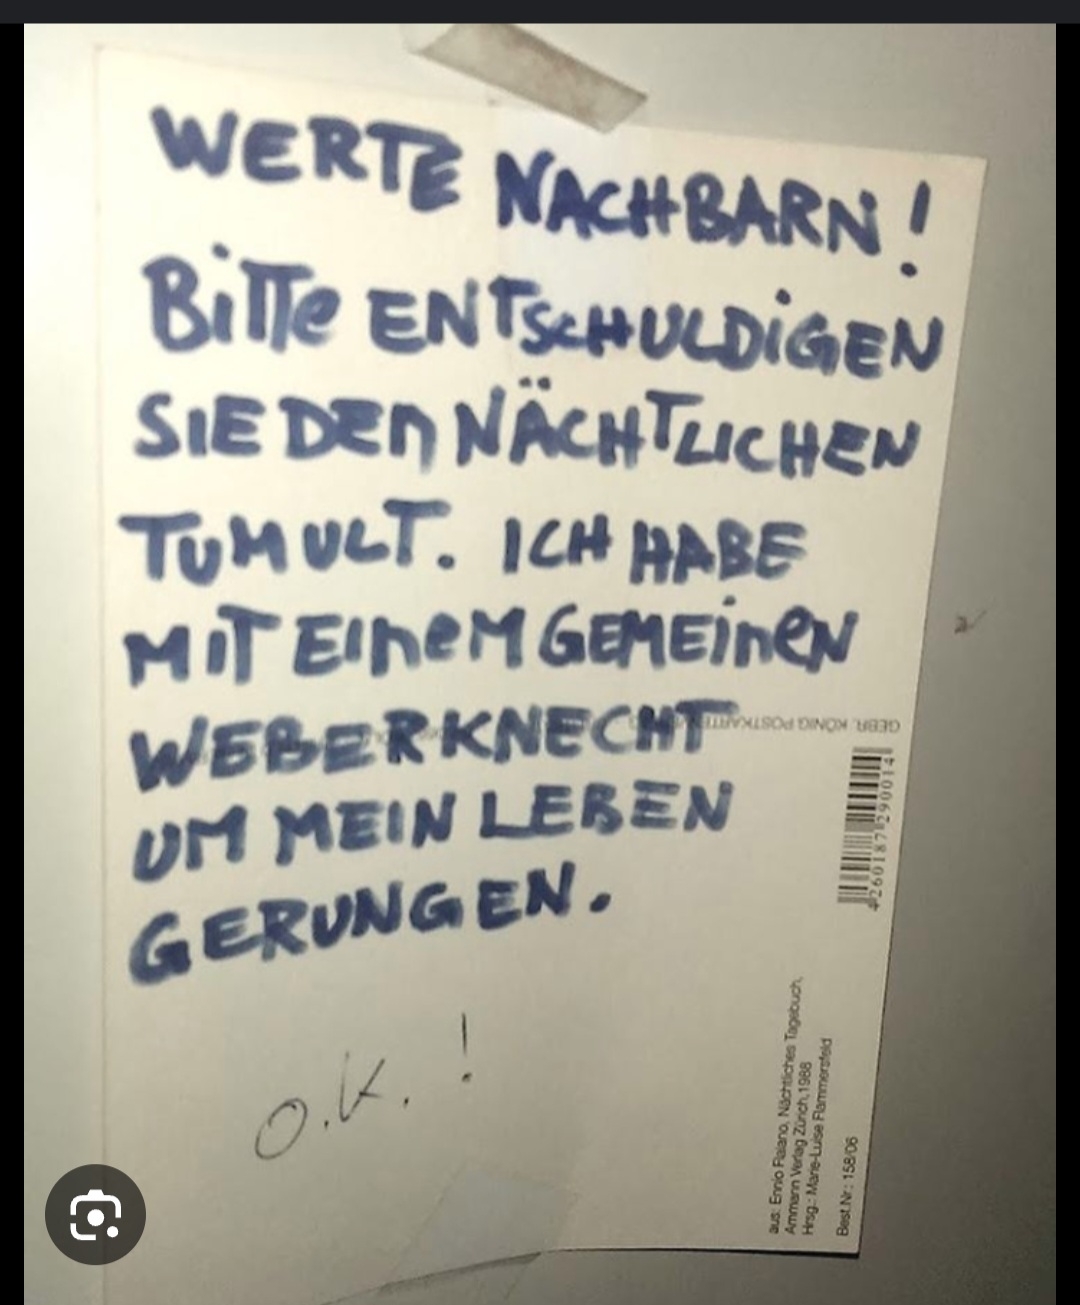 WERTE NACHBARN!
BiTTe ENTSCHULDiGEN
SIE DEn NÄCHTLICHEN
TUMULT. ICH HABE
MIT EIneM GEMEineN
WEBERKNECHT
UM MEIN LEBEN
GERUNGEN.
O.K. !
GEBR. KÖNIG POSTKARTEN
4260187290014
aus: Ennio Flaiano, Nächtliches Tagebuch,
Ammann Verlag Zürich, 1988
Hrsg.: Marie-Luise Flammersfeld
Best.Nr.: 158/06